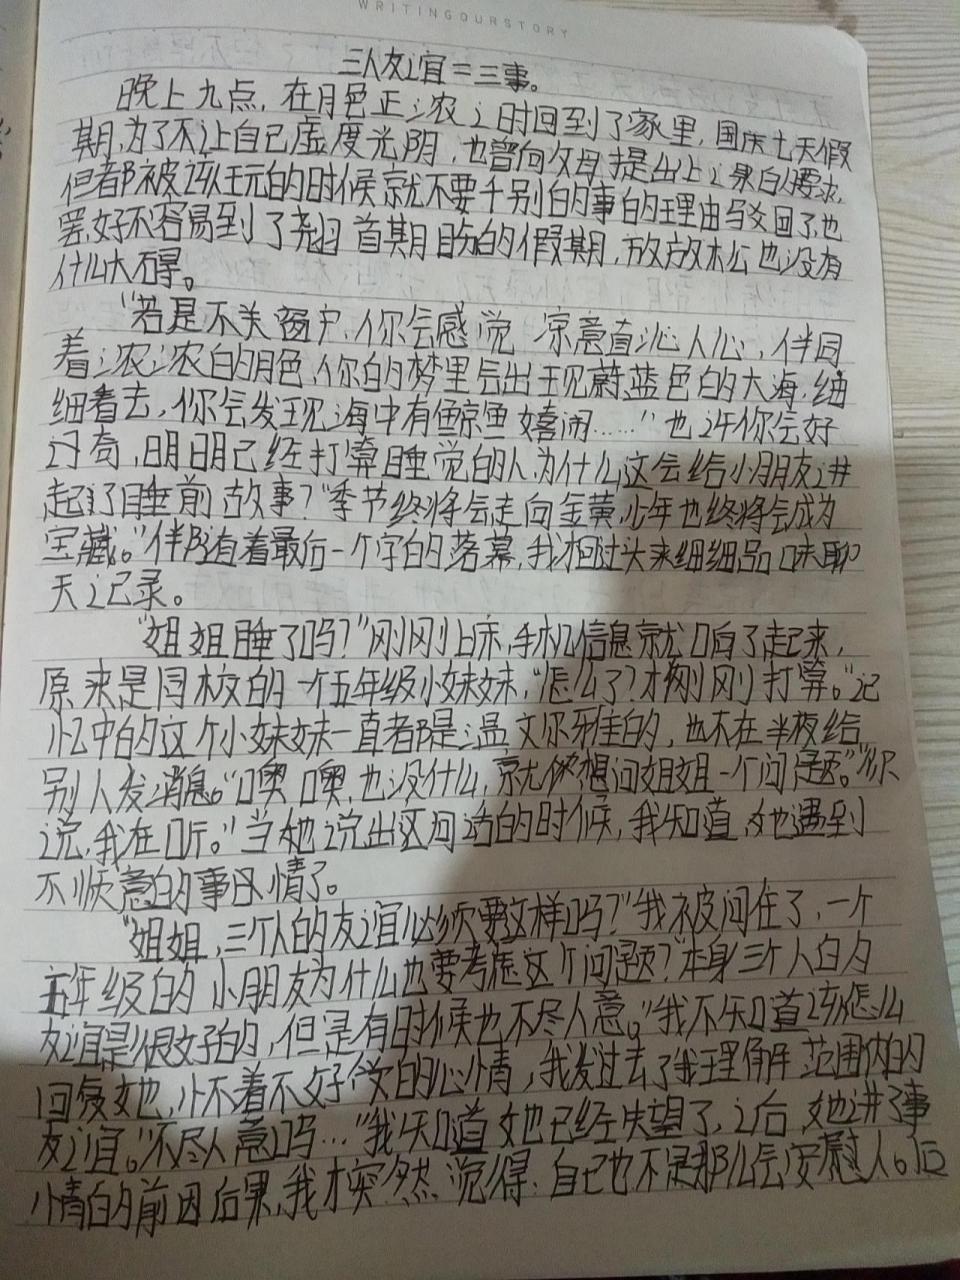 WRITINGOURSTORY
三人友谊=三事。
晚上九点，在月色正浓之时回到了家里，国庆七天假
期，为了不让自己虚度光阴，也曾向父母提出上课的要求，
但都被该玩的时候就不要干别的事的理由驳回了，也
罢，好不容易到了翘首期盼的假期，放放松也没有
什么大碍。
"若是不关窗户，你会感觉凉意直沁人心，伴同
着浓浓的月色，你的梦里会出现蔚蓝色的大海，细
细看去，你会发现海中有鲸鱼嬉闹……"也许你会好
讨奇，明明已经打算睡觉的人，为什么这会给小朋友讲
起了睡前故事？"季节终将会走向金黄，少年也终将会成为
宝藏。"伴随着最后一个字的落幕，我才回过头来细细品味聊
天记录。
"姐姐睡了吗？"刚刚上床，手机信息就响了起来，
原来是同校的一个五年级小妹妹，"怎么了？才刚刚打算。"记
忆中的这个小妹妹一直都是温文尔雅的，也不在半夜给
别人发消息。"噢噢，也没什么，就想问姐姐一个问题。""你
说，我在听。"当她说出这句话的时候，我知道，她遇到
不顺意的事情了。
"姐姐，三个人的友谊必须要这样吗？"我被问住了，一个
五年级的小朋友为什么也要考虑这个问题？"本身三个人的
友谊是很好的，但是有时候也不尽人意。"我不知道该怎么
回复她，怀着不好受的心情，我发过去了我理解范围内的
友谊。"不尽人意吗…"我知道她已经失望了，之后，她讲了事
情的前因后果，我才突然觉得，自己也不是那么会安慰人。后